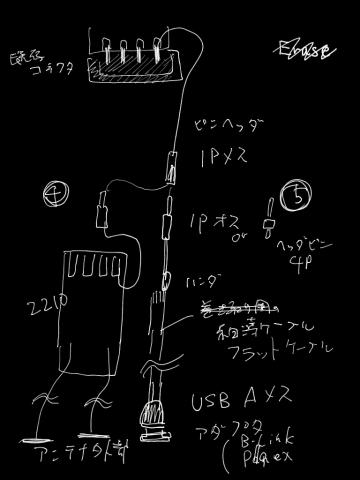 Erase
既存
コネクタ
ピンヘッダ
1Pメス
④
⑤
1Pオス
or
ヘッダピン
4P
ハンダ
2210
ケーブル
フラットケーブル
USB Aメス
アダプタ
アンテナ外部